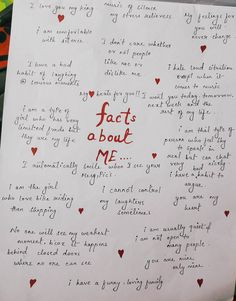 I love you my king
music or silence
my stress relievers
My feelings for
you will
never change
i am comfortable
with silence
I don't care whether
or not people
like me or
dislike me
I have a bad
habit of laughing
@ serious moments
I hate loud situation
except when it
comes to music
My heart beats for you!!
I want you today, tomorrow,
next week and the
rest of my life.
facts
about
ME....
i am a type of
girl who has very
limited friends but
they are my life
i am that type of
person who feel shy
to speak in
real but can chat
very nicely
I automatically smile when I see your
Msg/Pic!
i have a habit to
argue
i am the girl
who love bike riding
than shopping
i cannot control
my laughters
sometimes!
you are my
heart
No one will see my weakest
moment, bcoz it happens
behind closed doors
where no one can see
i am usually quiet &
i am not open to
many people
you are mine
only mine
i have a funny, loving family